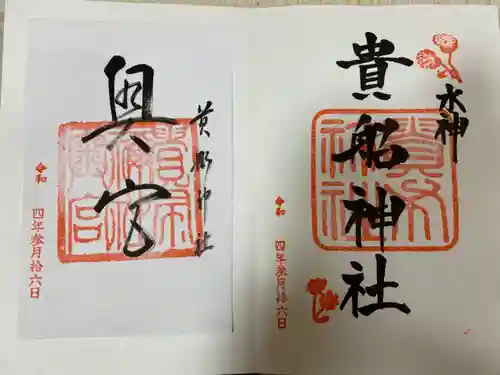 水神
貴船神社
令和四年参月拾六日
貴船神社
奥宮
令和四年参月拾六日